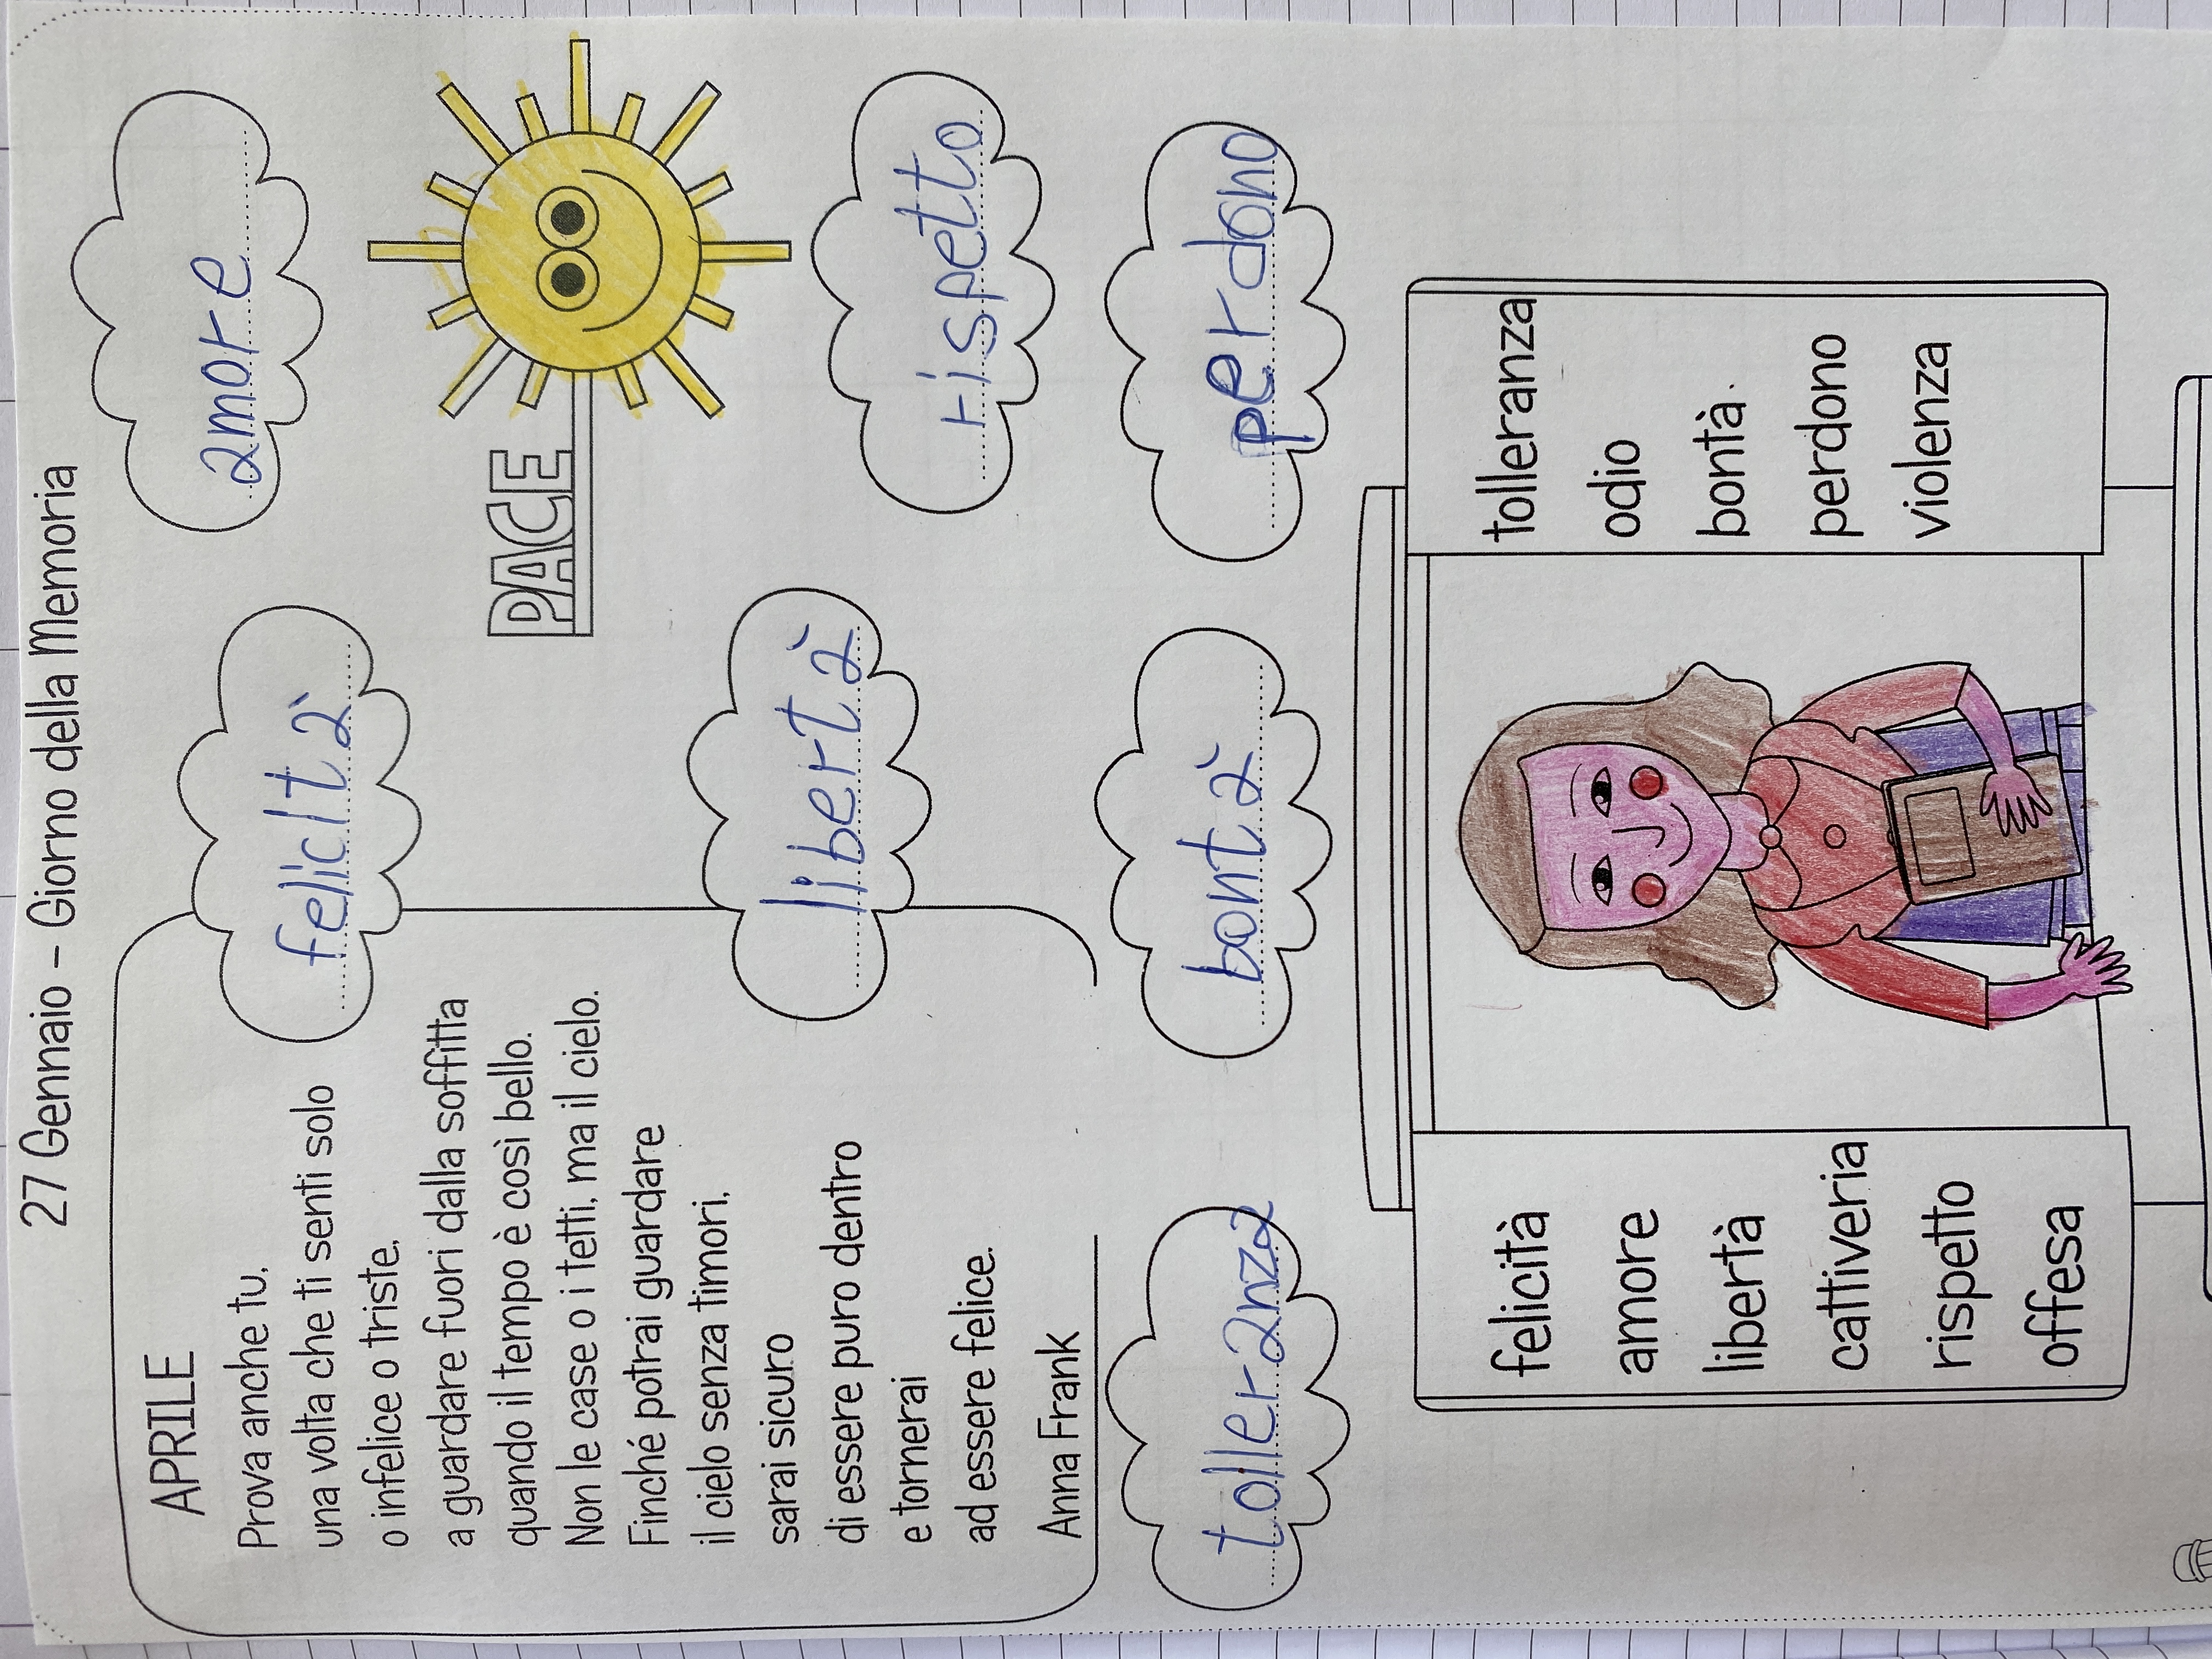 27 Gennaio - Giorno della Memoria
APRILE
Prova anche tu,
una volta che ti senti solo
o infelice o triste,
a guardare fuori dalla soffitta
quando il tempo è così bello.
Non le case o i tetti, ma il cielo.
Finché potrai guardare
il cielo senza timori,
sarai sicuro
di essere puro dentro
e tornerai
ad essere felice.
Anna Frank
felicità
amore
PACE
libertà
rispetto
tolleranza
bontà
perdono
felicità
amore
libertà
cattiveria
rispetto
offesa
tolleranza
odio
bontà
perdono
violenza